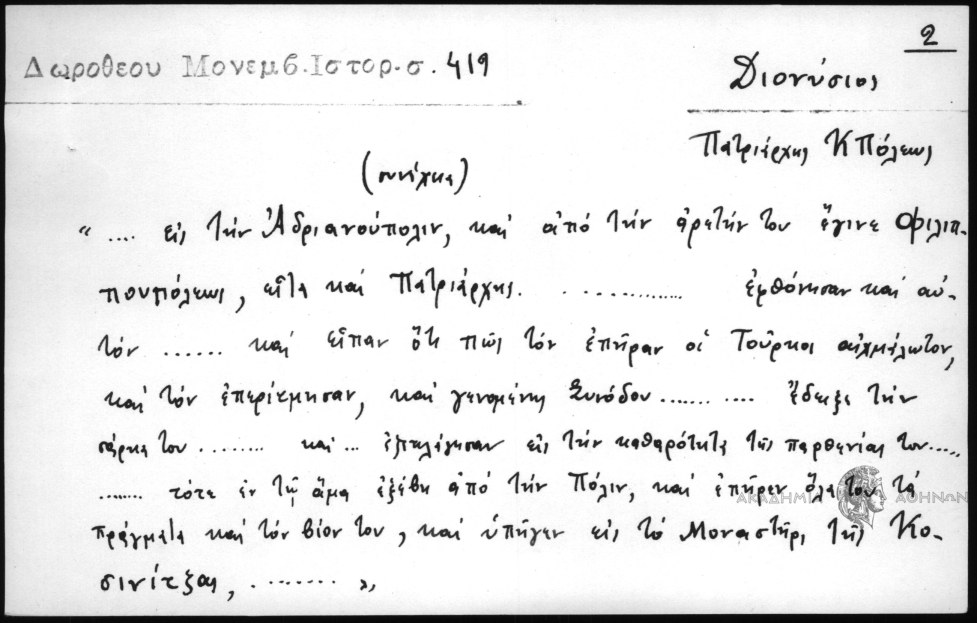 2
Δωροθεου Μονεμβ. Ιστορ. σ. 419
Διονύσιος
Πατριάρχης ΚΠόλεως
(συνέχεια)
" .... εις την Ἀδριανούπολιν, και ἀπό την ἀρετήν του ἔγινε Φιλιπ-
πουπόλεως, εἶτα και Πατριάρχης. ............. ἐφθόνησαν και αὐ-
τόν ...... και εἶπαν ὅτι πῶς τον ἐπῆραν οἱ Τοῦρκοι αἰχμάλωτον,
και τόν ἐπερίτμησαν, και γενομένης Συνόδου ....... .... ἔδειξε την
σάρκα του ........ και ... ἐξεπλάγησαν εις την καθαρότητα της παρθενίας του.....
....... τότε ἐν τῷ ἅμα ἐξέβη ἀπό την Πόλιν, και ἐπῆρεν ὅλα του τα
πράγματα και τον βίον του, και ὑπῆγεν εις το Μοναστῆρι τῆς Κο-
σινίτζας, ......... "
ΑΚΑΔΗΜΙΑ ΑΘΗΝΩΝ